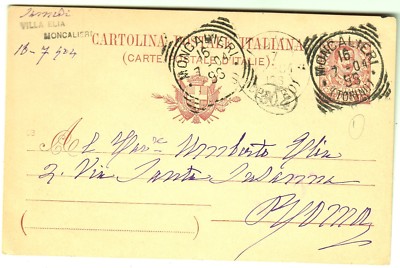 Lunedì
VILLA ELIA
MONCALIERI
18-7 904
CARTOLINA POSTALE ITALIANA
(CARTE POSTALE D'ITALIE)
MONCALIERI
16
7 04
MONCALIERI
16
7 04
(TORINO)
Al Umberto Elia
2. Via Santa Susanna
Roma